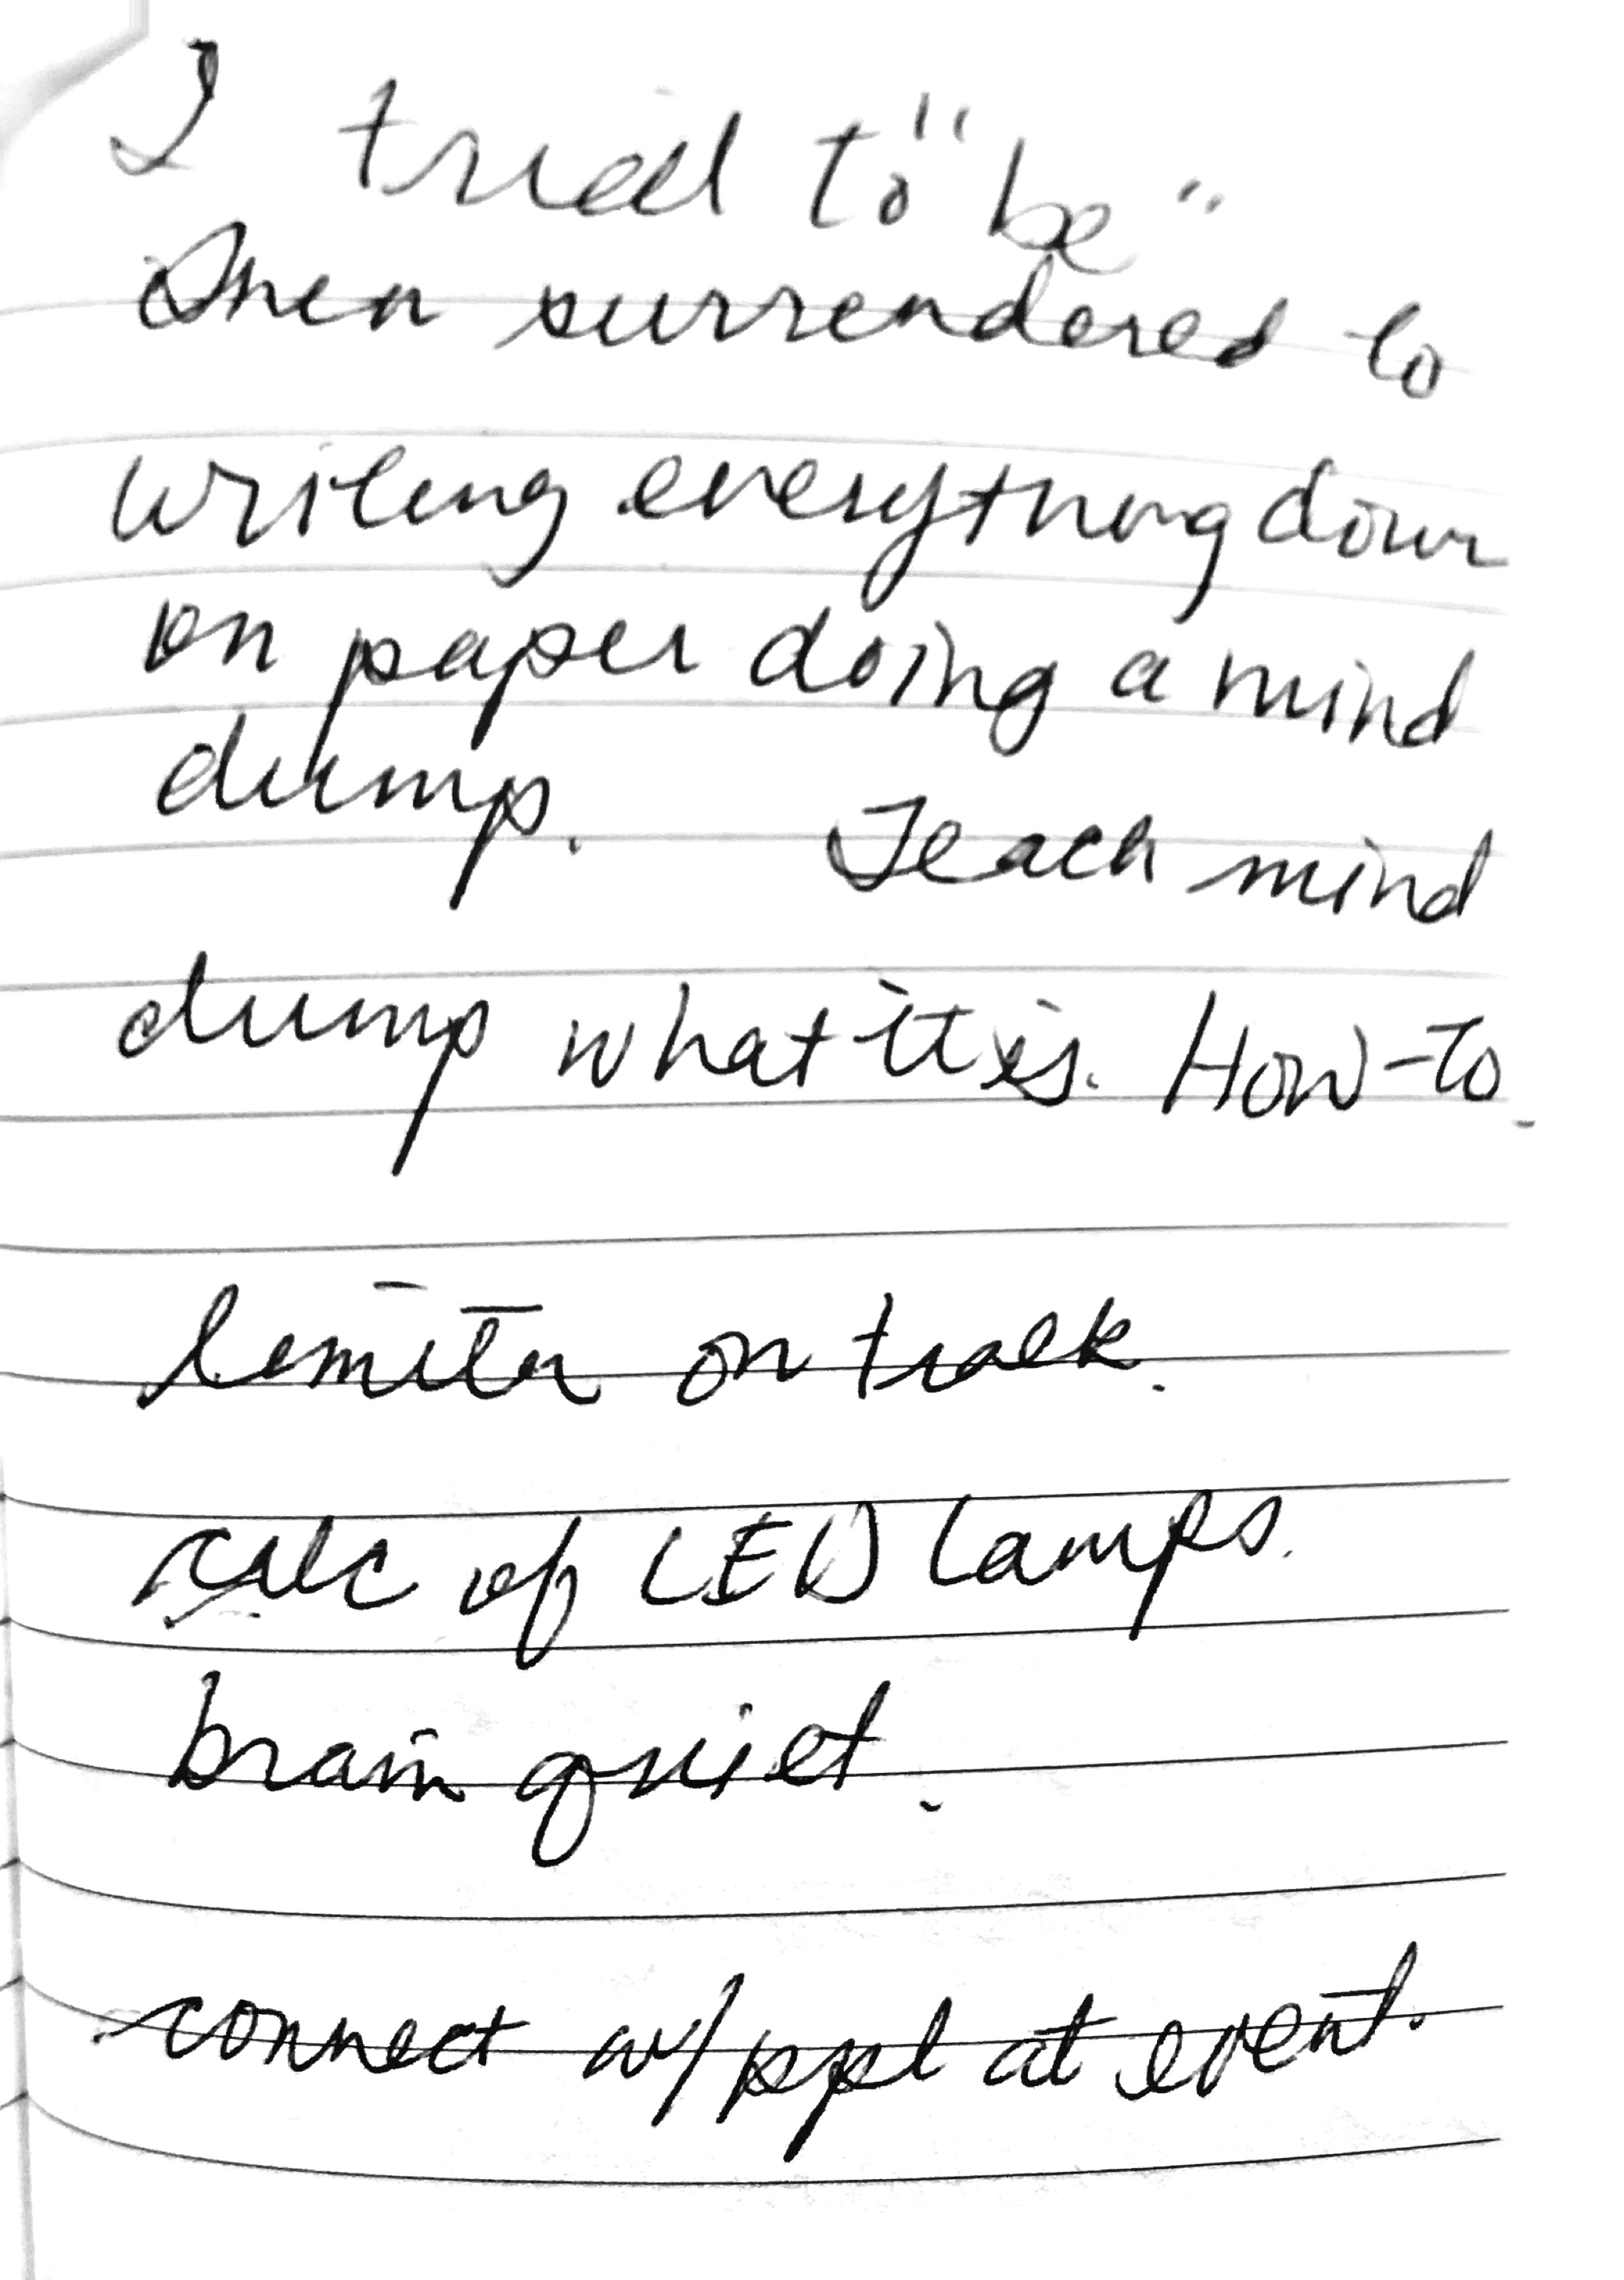 I tried to "be"
then surrendered to
writing everything down
on paper doing a mind
dump. Teach mind
dump what it is. How-to.
limiter on track.
calc of LED lamps.
brain quiet.
connect w/ppl at event.